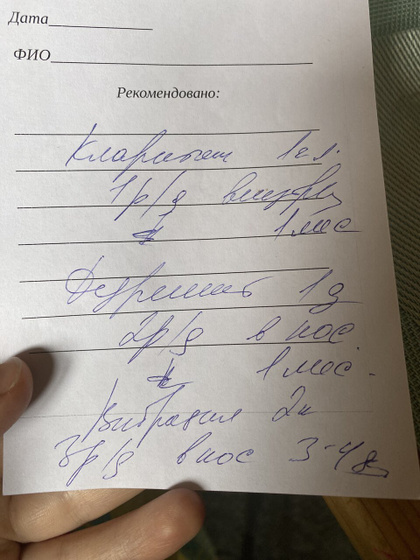 Дата
ФИО
Рекомендовано:
Кларитин 1 т.
1 р/д внутрь
1 мес
1 д
2 р/д в нос
1 мес.
Виброцил 2к
3 р/д в нос 3-4 д